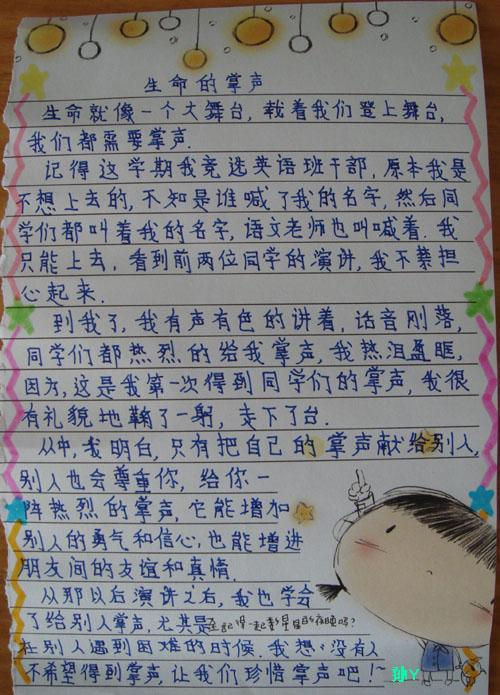 生命的掌声
生命就像一个大舞台,载着我们登上舞台,
我们都需要掌声.
记得这学期我竞选英语班干部,原本我是
不想上去的,不知是谁喊了我的名字,然后同
学们都叫着我的名字,语文老师也叫喊着.我
只能上去,看到前两位同学的演讲,我不禁担
心起来.
到我了,我有声有色的讲着,话音刚落,
同学们都热烈的给我掌声,我热泪盈眶,
因为,这是我第一次得到同学们的掌声,我很
有礼貌地鞠了一躬,走下了台.
从中,我明白,只有把自己的掌声献给别人,
别人也会尊重你,给你一
阵热烈的掌声,它能增加
别人的勇气和信心,也能增进
朋友间的友谊和真情.
从那以后演讲之后,我也学会
了给别人掌声,尤其是
还记得一起数星星的夜晚吗?
在别人遇到困难的时候.我想:没有人
不希望得到掌声,让我们珍惜掌声吧!